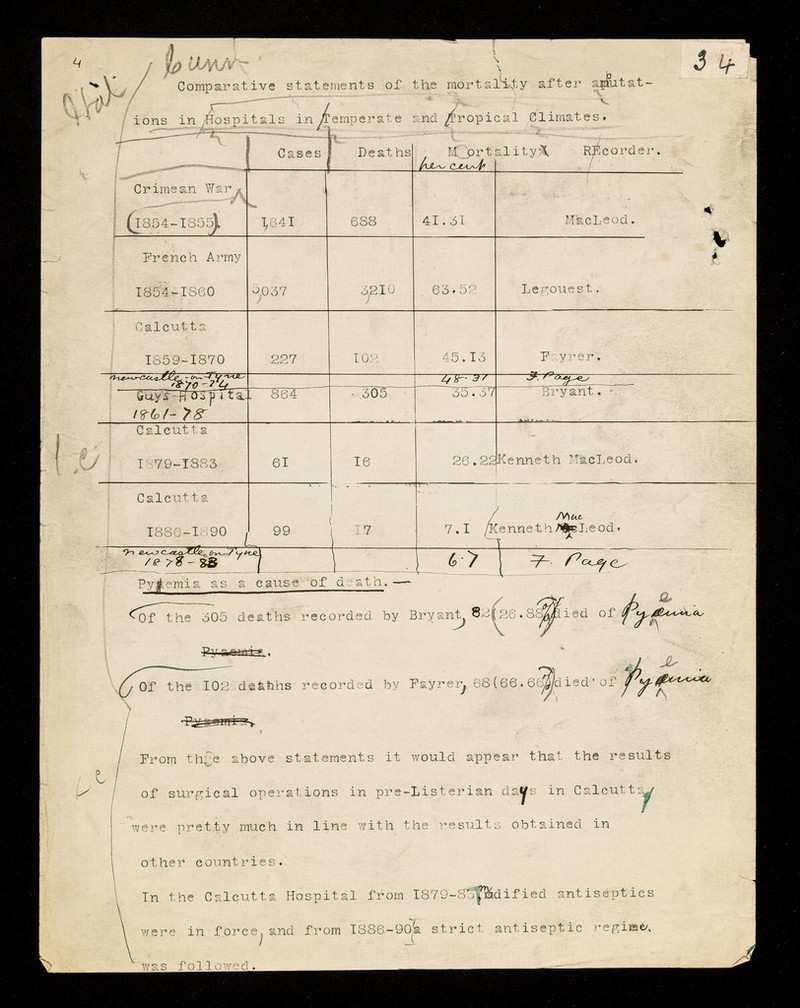 4
34
Comparative statements of the mortality after amputat-
ions in Hospitals in Temperate and Tropical Climates.
Cases Deaths Mortality % RECorder.
per cent
Crimean War,
(1854-1855). 1,641 688 41.31 MacLeod.
French Army
1854-1860 5,037 3,210 63.52 Legouest.
Calcutta
1859-1870 227 102 45.13 Fayrer.
Newcastle-on-Tyne
1870-74 48.37 F. Page
Guy's Hospital 864 305 35.37 Bryant.
1861-78
Calcutta
1879-1883 61 16 26.22 Kenneth MacLeod.
Calcutta Mac
1886-1890 99 17 7.1 Kenneth Leod.
Newcastle-on-Tyne
1878-88 6.7 F. Page
Pyemia as a cause of death.—
Of the 305 deaths recorded by Bryant, 82 (26.88%) died of Pyemia
Pyaemia.
Of the 102 deathhs recorded by Fayrer, 68 (66.66%) died of Pyemia
Pyaemia.
From the above statements it would appear that the results
of surgical operations in pre-Listerian days in Calcutta
were pretty much in line with the results obtained in
other countries.
In the Calcutta Hospital from 1879-83 modified antiseptics
were in force, and from 1886-90 a strict antiseptic regime
was followed.